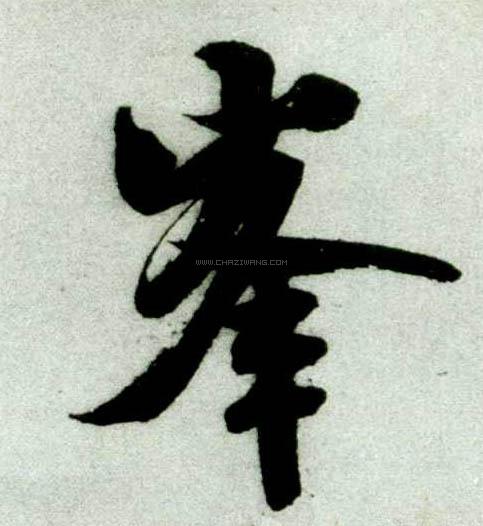 峯
WWW.CHAZIWANG.COM